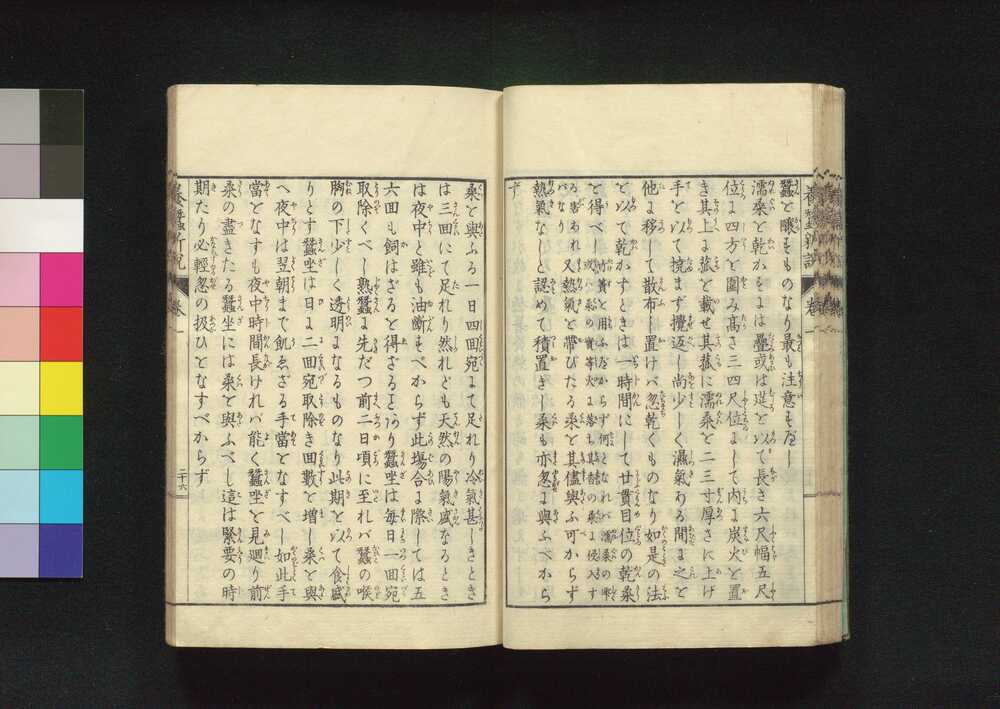 蠶を暖むものなり最も注意すべし
濡桑を乾かすには疊或は莚を以て長さ六尺幅五尺
位に四方を圍み高さ三四尺位にして内に炭火を置
き其上に菰を載せ其菰に濡桑を二三寸厚さに上げ
手を以て撓まず攪返し尚少しく濕氣ある間に之を
他に移して散布し置けバ忽乾くものなり如是の法
を以て乾かすときは一時間にして廿貫目位の乾桑
を得べし
る害あれバなり 又熱氣を帶びたる桑を其儘與ふ可からず
熱氣なしと認めて積置きし桑も亦忽に與ふべから
ず
桑を與ふる一日四回宛にて足れり冷氣甚しきとき
は三回にて足れり然れども天然の陽氣盛なるとき
は夜中と雖も油斷すべからず此場合に際しては五
六回も飼はざるを得ざることあり蠶坐は毎日一回宛
取除くべし熟蠶に先だつ前二日頃に至れバ蠶の喉
胸の下少しく透明になるものなり此期を以て食盛
りとす蠶坐は日に二回宛取除き回數を増し桑を與
へ夜中は翌朝まで飢ゑざる手當をなすべし如此手
當をなすも夜中時間長けれバ能く蠶坐を見廻り前
桑の盡きたる蠶坐には桑を與ふべし這は緊要の時
期たり必輕忽の扱ひをなすべからず
養蠶新説
卷一
二十六